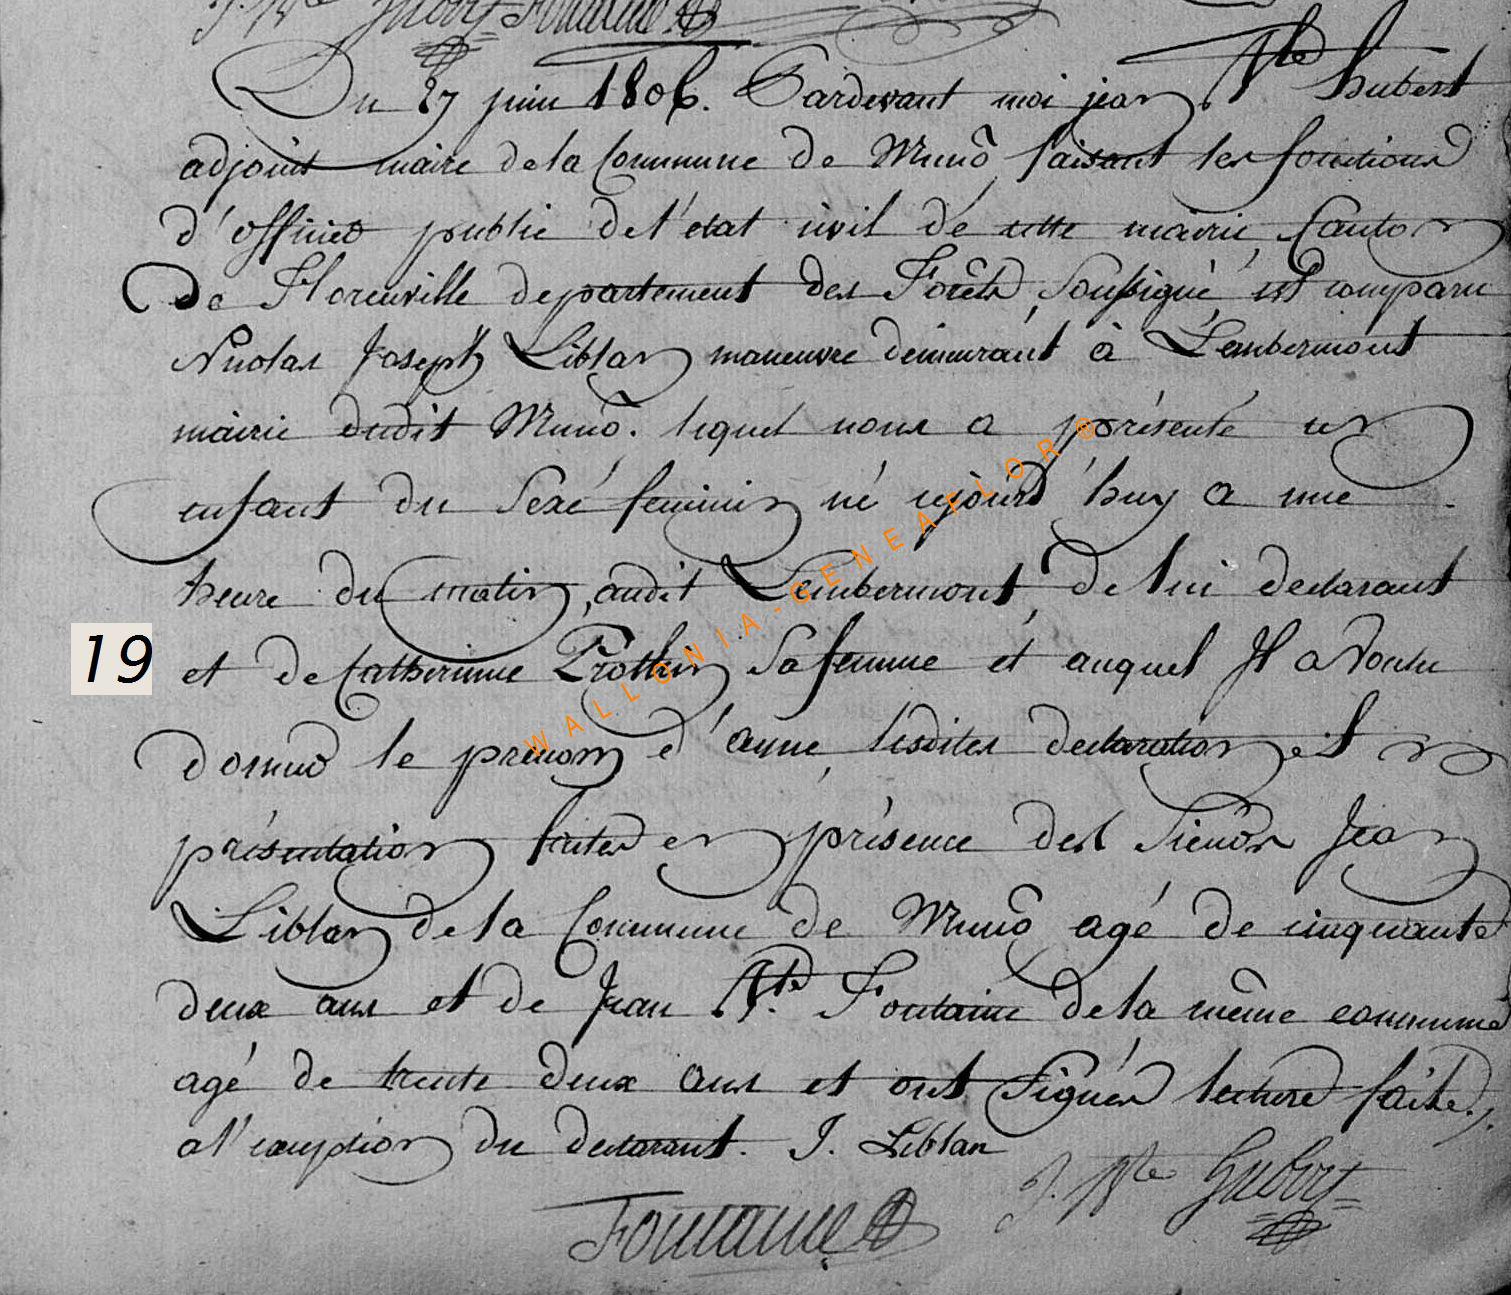 J. Bte Hubert Fontaine
Du 27 juin 1806. Pardevant moi jean Bte hubert
adjoint maire de la Commune de Munõ faisant les fonctions
d'officier public de l'état civil de cette mairie, Canton
De Florenville departement des Forêts, soussigné est comparu
Nicolas Joseph Liblan maneuvre demeurant à Lambermont
mairie dudit Munõ. lequel nous a présenté un
enfant du Sexé feminin né cejourd'huy a une
heure du matin, audit Lambermont, de lui declarant
et de Catherinne Trothin Sa femme et auquel Il a Voulu
19
donner le prenom d'anne, lesdites declaration et
présentation faites en présence des Sieurs Jean
Liblan de la Commune de Munõ agé de cinquante
deux ans et de Jean Bte. Fontaine de la même commune
agé de trente deux ans et ont Signés lecture faite.
a l'exeption du declarant. J. Liblan
J. Bte Hubert
Fontaine
WALLONIA-GENEAFLOR®